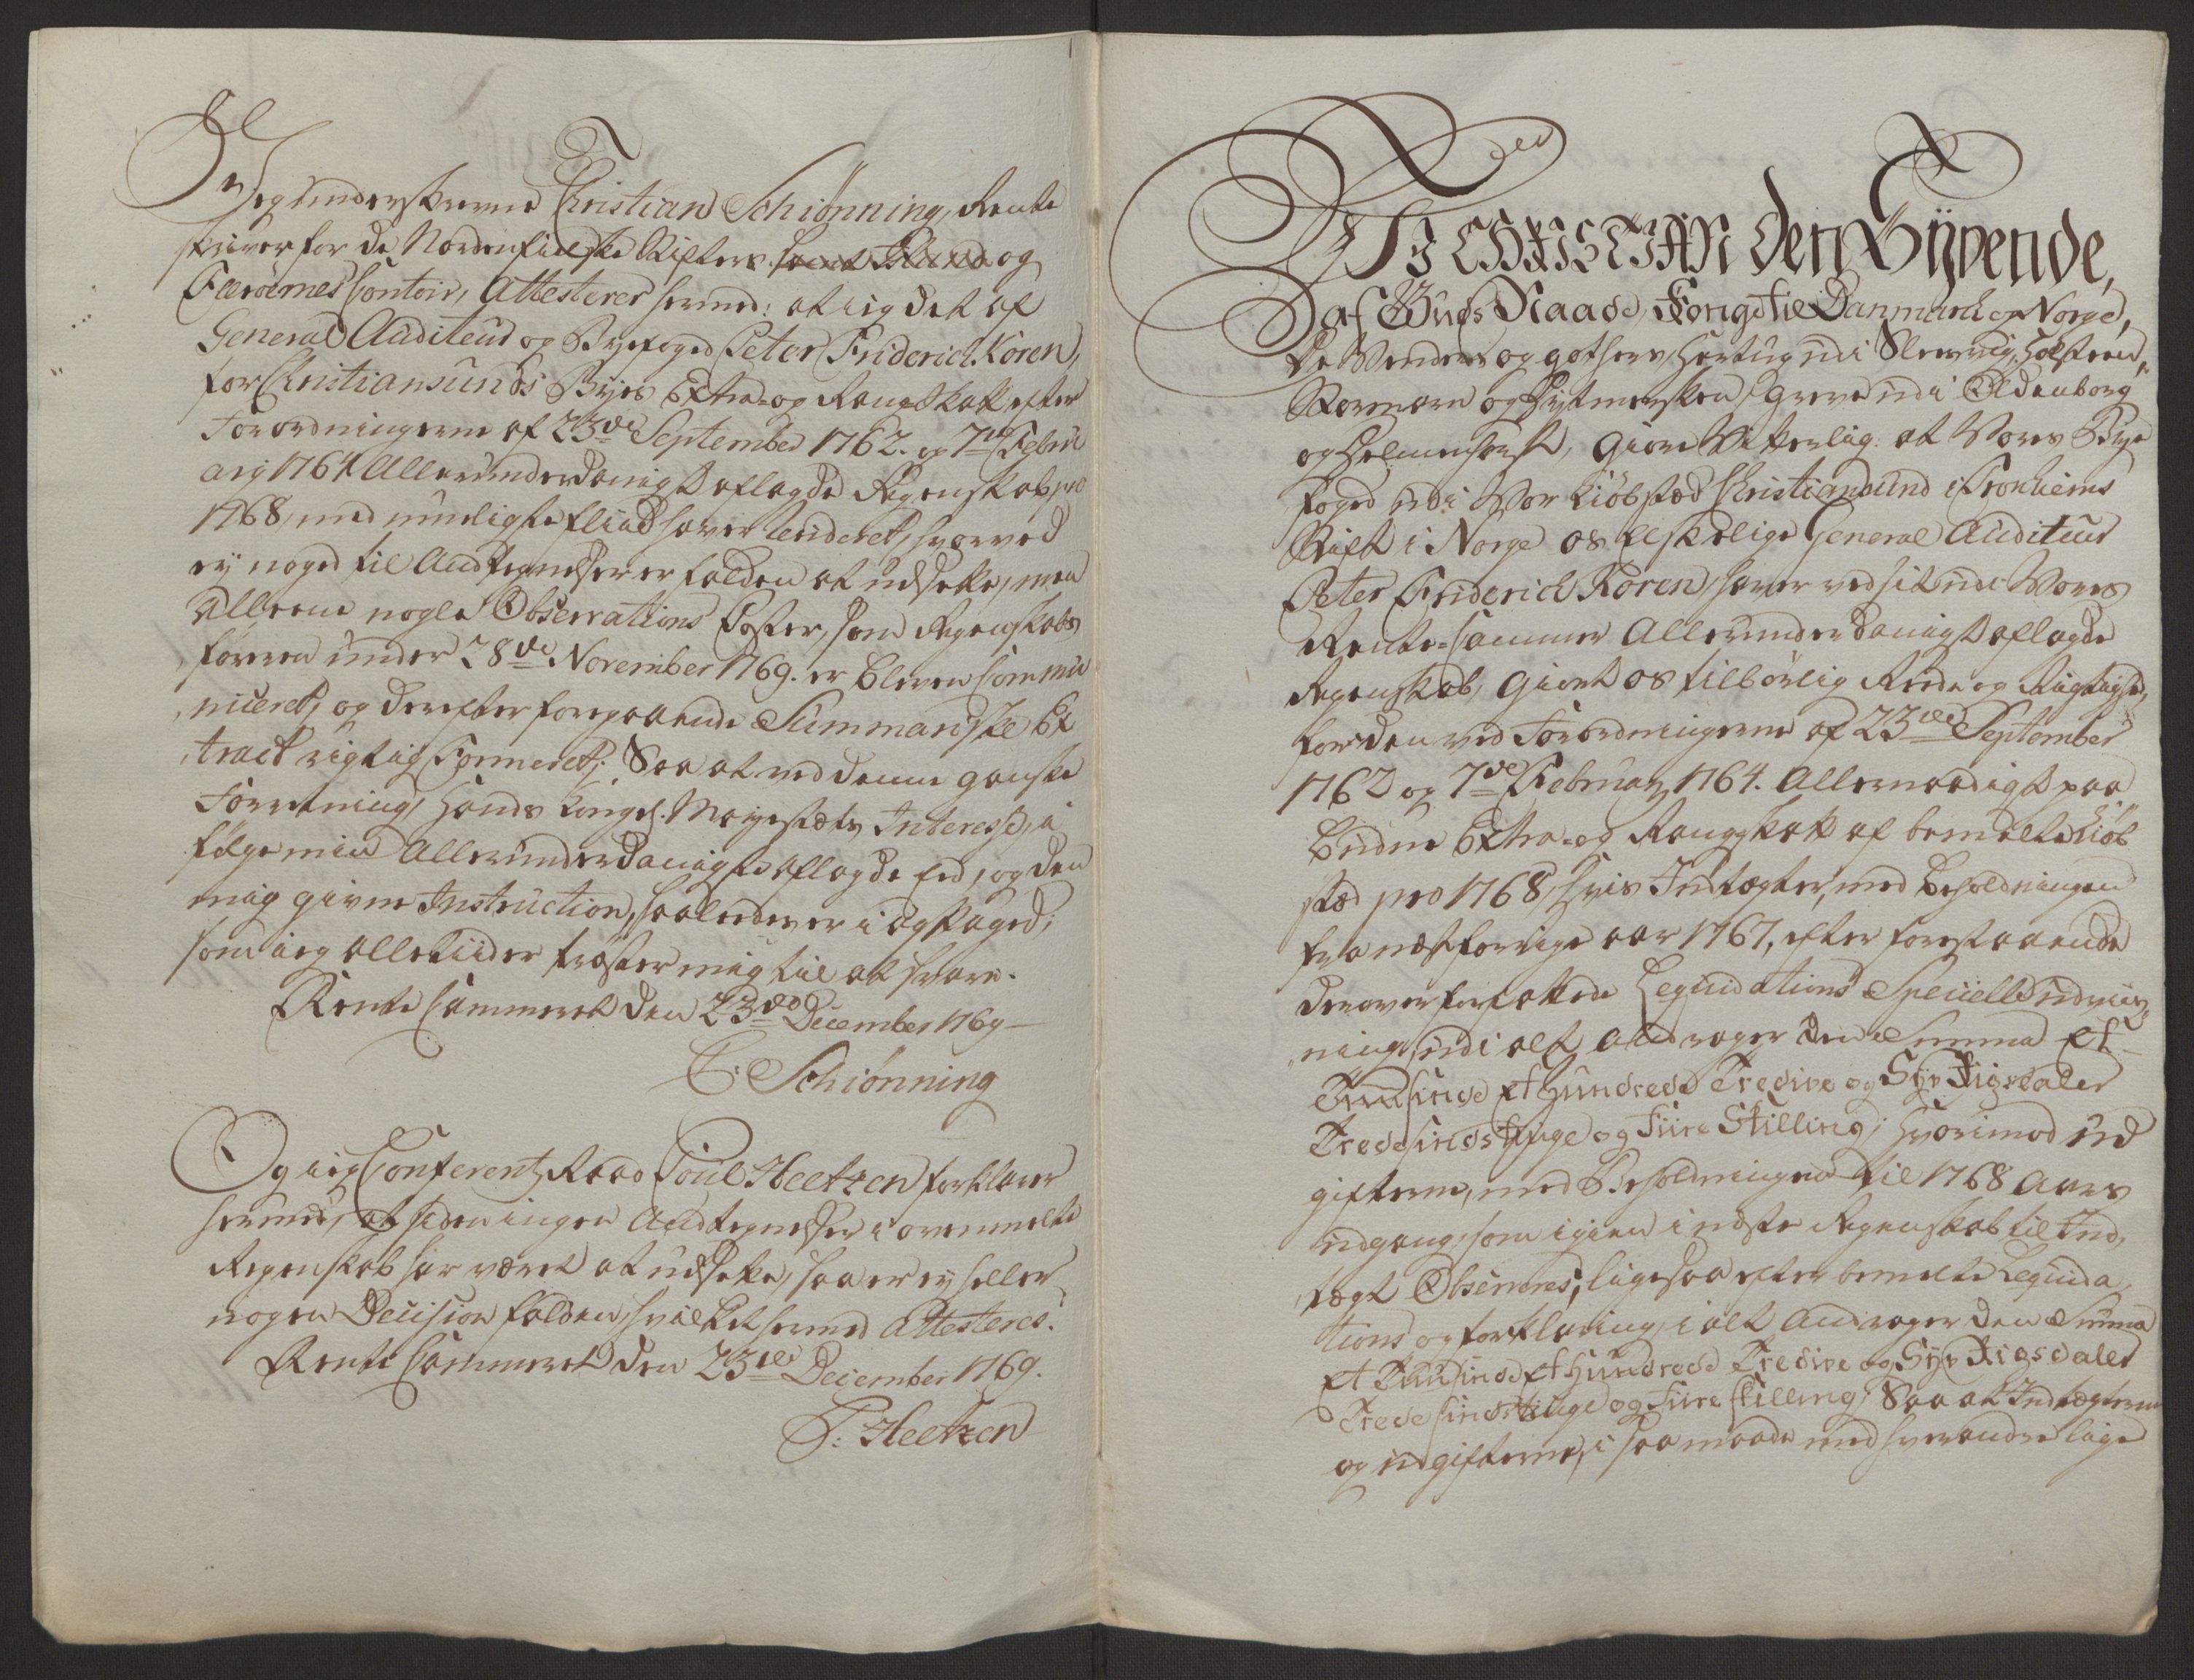 Jeg underskrevne Christian Schiønning, Rente
skriver for de Nordenfieldske Stifters samt Island og
Færöernes Contoir, Attesterer hermed: at ieg det af
General Auditeur og Byefoged Peter Friderich Koren,
for Christiansunds Byes Extra- og Rang Skatt efter
Forordningerne af 23de September 1762. og 7de Febru
arij 1764 Allerunderdanigst aflagde Regenskab pro
1768, med mueligste fliid haver revideret, hvorved
ey noget til Andtegnelser er falden at udsette, men
alleene nogle Observations Poster, som Regenskabs
føreren under 28de November 1769. er bleven Commu
niceret, og derefter foregaaende Summariske Ex
tract rigtig Formeret; Saa at ved denne ganske
Forretning, Hands Kongel. Mayestæts Interesse, i
følge min Allerunderdanigste aflagde Eed, og den
mig givne Instruction, saaledes er i agttaget;
som ieg alletiider trøster mig til at svare.
Rente Cammeret den 23de December 1769
C. Schiønning
Og ieg Conferentz Raad Poul Heetzen forklarer
hermed, at siden ingen Andtegnelser i ovenmelte
Regenskab har været at udsette, saa er ey heller
nogen Decision falden, hvilket hermed Attesteres.
Rente Cammeret den 23de December 1769.
P. Heetzen
VI CHRISTIAN den Syvende,
af Guds Naade, Konge til Danmark og Norge,
de Venders og Gothers, Hertug udi Slesvig, Holsteen,
Stormarn og Dytmersken, Greve udi Oldenborg
og Delmenhorst, Giøre Vitterlig: at Vores Bye
foged udi Vor Kiøbsted Christiansund i Tronhiems
Stift i Norge os Elskelige General Auditeur
Peter Friderich Koren, haver ved sit udi Vores
Rente-Cammer Allerunderdanigst aflagde
Regenskab, Giort os tilbørlig Reede og Rigtighed,
for den ved Forordningerne af 23de September
1762 og 7de Februarij 1764. Allernaadigst paa
budne Extra- og Rangskatt af bemelte Kiøb
sted pro 1768, hvis Indtægter, med Beholdningen
fra næstforrige aar 1767, efter forestaaende
derover forfattede Liqvidations Specielle udviis
ning, udi alt Andrager den Summa Et
Tuusinde Et Hundrede Tredive og Syv Rigsdaler
Tredesindstiuge og Fiire Skilling; Hvorimod Ud
gifterne, med Beholdningen til 1768 Aars
udgang, som igien i neste Regenskab til Ind
tægt Observeres, ligesaa efter bemelte Liqvida
tions og forklaring, i alt Andrager den Summa
Et Tuusinde Et Hundrede Tredive og Syv Rigsdaler
Tredesindstiuge og Fiire Skilling; Saa at Indtægterne
og udgifterne, i saa maade med hverandre lige